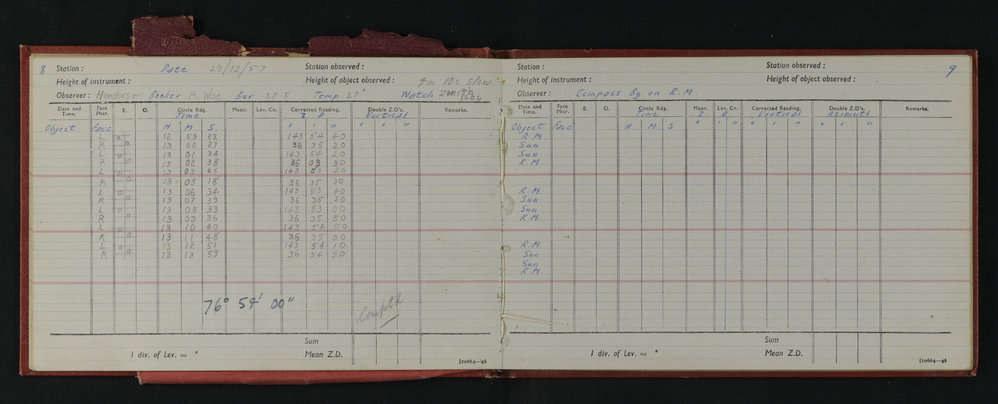 8 Station : Date 29/12/57 Station observed :
Height of instrument : Height of object observed : 4m 10s slow
Observer : Henderson Booker K. Wise Bar 27.5 Temp 27° Watch Zenith
Date and Time. Face Micr. E. O. Circle Rdg. Time Mean. Lev. Co. Corrected Reading. Z D Double Z.D's. Vertical Remarks.
Object Face H M S ° ' " ° ' "
L 12 59 22 143 54 40
R 13 00 27 36 35 20
L 13 01 34 143 54 20
R 13 02 38 36 03 30
L 13 03 45 143 53 20
R 13 05 18 36 35 30
L 13 06 34 143 53 40
R 13 07 39 36 35 20
L 13 08 33 143 53 00
R 13 09 36 36 35 50
L 13 10 40 143 54 00
R 13 11 48 36 35 00
L 13 12 51 143 54 10
R 13 13 59 36 34 50
76° 54' 00"
Sum
1 div. of Lev. = " Mean Z.D. [10664—46
Station : Station observed : 9
Height of instrument : Height of object observed :
Observer : Compass Bg on R.M.
Date and Time. Face Micr. E. O. Circle Rdg. Time Mean. Lev. Co. Corrected Reading. Vertical Double Z.D's. Azimuth Remarks.
Object Face H M S ° ' " ° ' "
R.M.
Sun
Sun
R.M.
R.M.
Sun
Sun
R.M.
R.M.
Sun
Sun
R.M.
Sum
1 div. of Lev. = " Mean Z.D. [10664—46